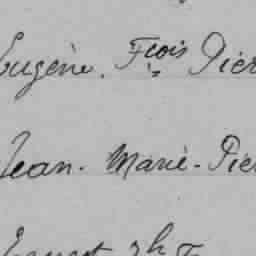 Eugène. Fçois Pier
Jean. Marie. Pie
Ernest